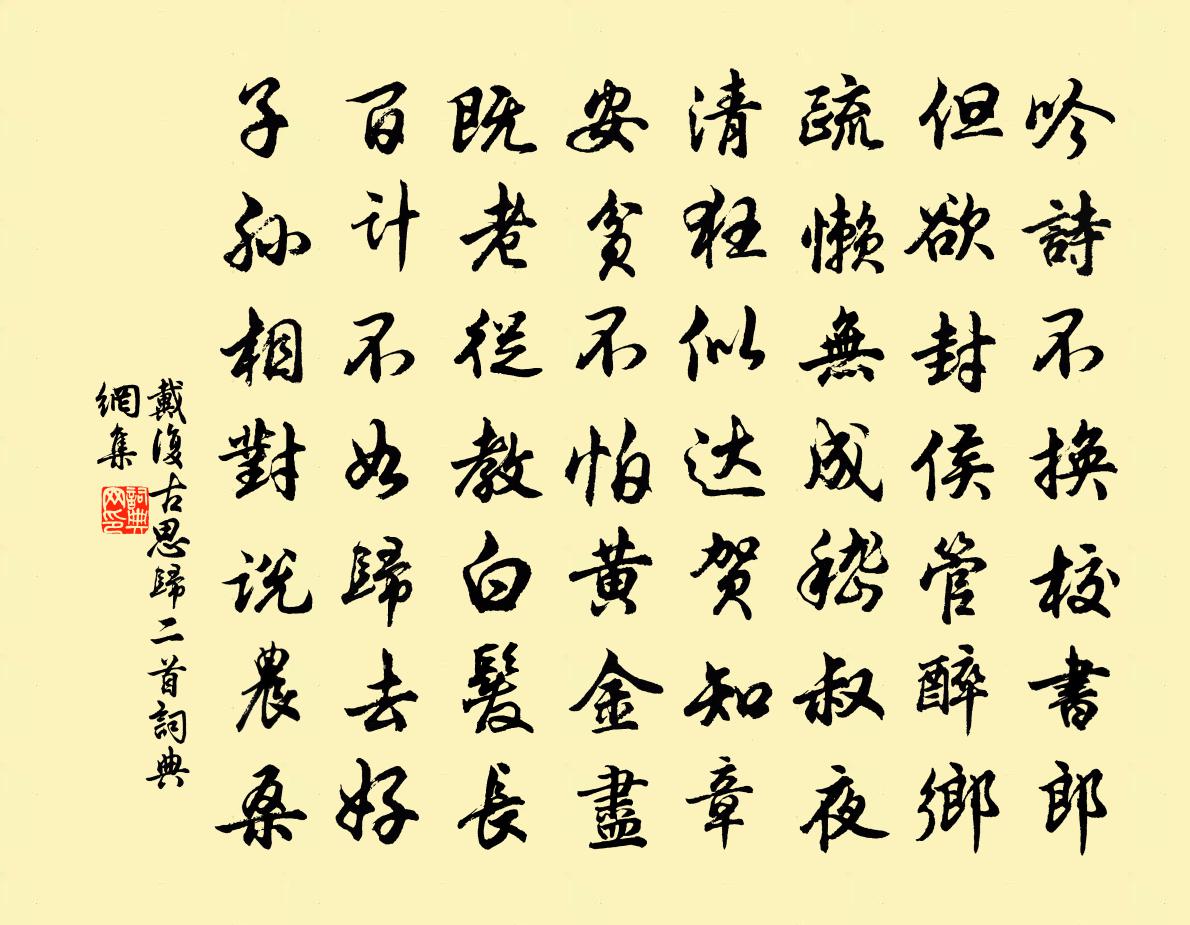 吟詩不換校書郎
但欲封侯管醉鄉
疏懶無成嵇叔夜
清狂似达贺知章
安贫不怕黄金盡
既老從教白髮長
百计不如歸去好
子孙相對说農桑
戴復古思歸二首詞典
網集
詞典
网印